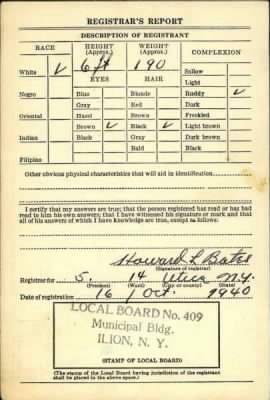 REGISTRAR'S REPORT
DESCRIPTION OF REGISTRANT
RACE HEIGHT (Approx.) WEIGHT (Approx.) COMPLEXION
White ✓ 6 ft 190 Sallow
EYES HAIR Light
Negro Blue Blonde Ruddy ✓
Gray Red Dark
Oriental Hazel Brown Freckled
Brown ✓ Black ✓ Light brown
Indian Black Gray Dark brown
Bald Black
Filipino
Other obvious physical characteristics that will aid in identification
I certify that my answers are true; that the person registered has read or has had
read to him his own answers; that I have witnessed his signature or mark and that
all of his answers of which I have knowledge are true, except as follows:
Howard L Bates
(Signature of registrar)
Registrar for 5. 14 Utica N.Y.
(Precinct) (Ward) (City or county) (State)
Date of registration 16 Oct. 1940
LOCAL BOARD No. 409
Municipal Bldg.
ILION, N. Y.
(STAMP OF LOCAL BOARD)
(The stamp of the Local Board having jurisdiction of the registrant
shall be placed in the above space.)